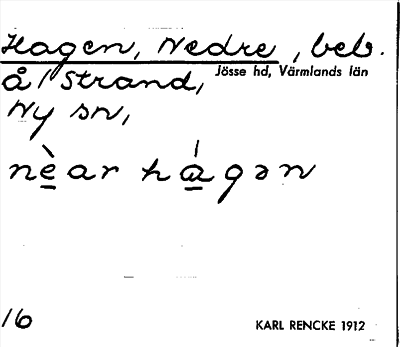 Hagen, Nedre, beb.
å Strand, Jösse hd, Värmlands län
Ny sn,
nè̱ar há̱gən
16 KARL RENCKE 1912